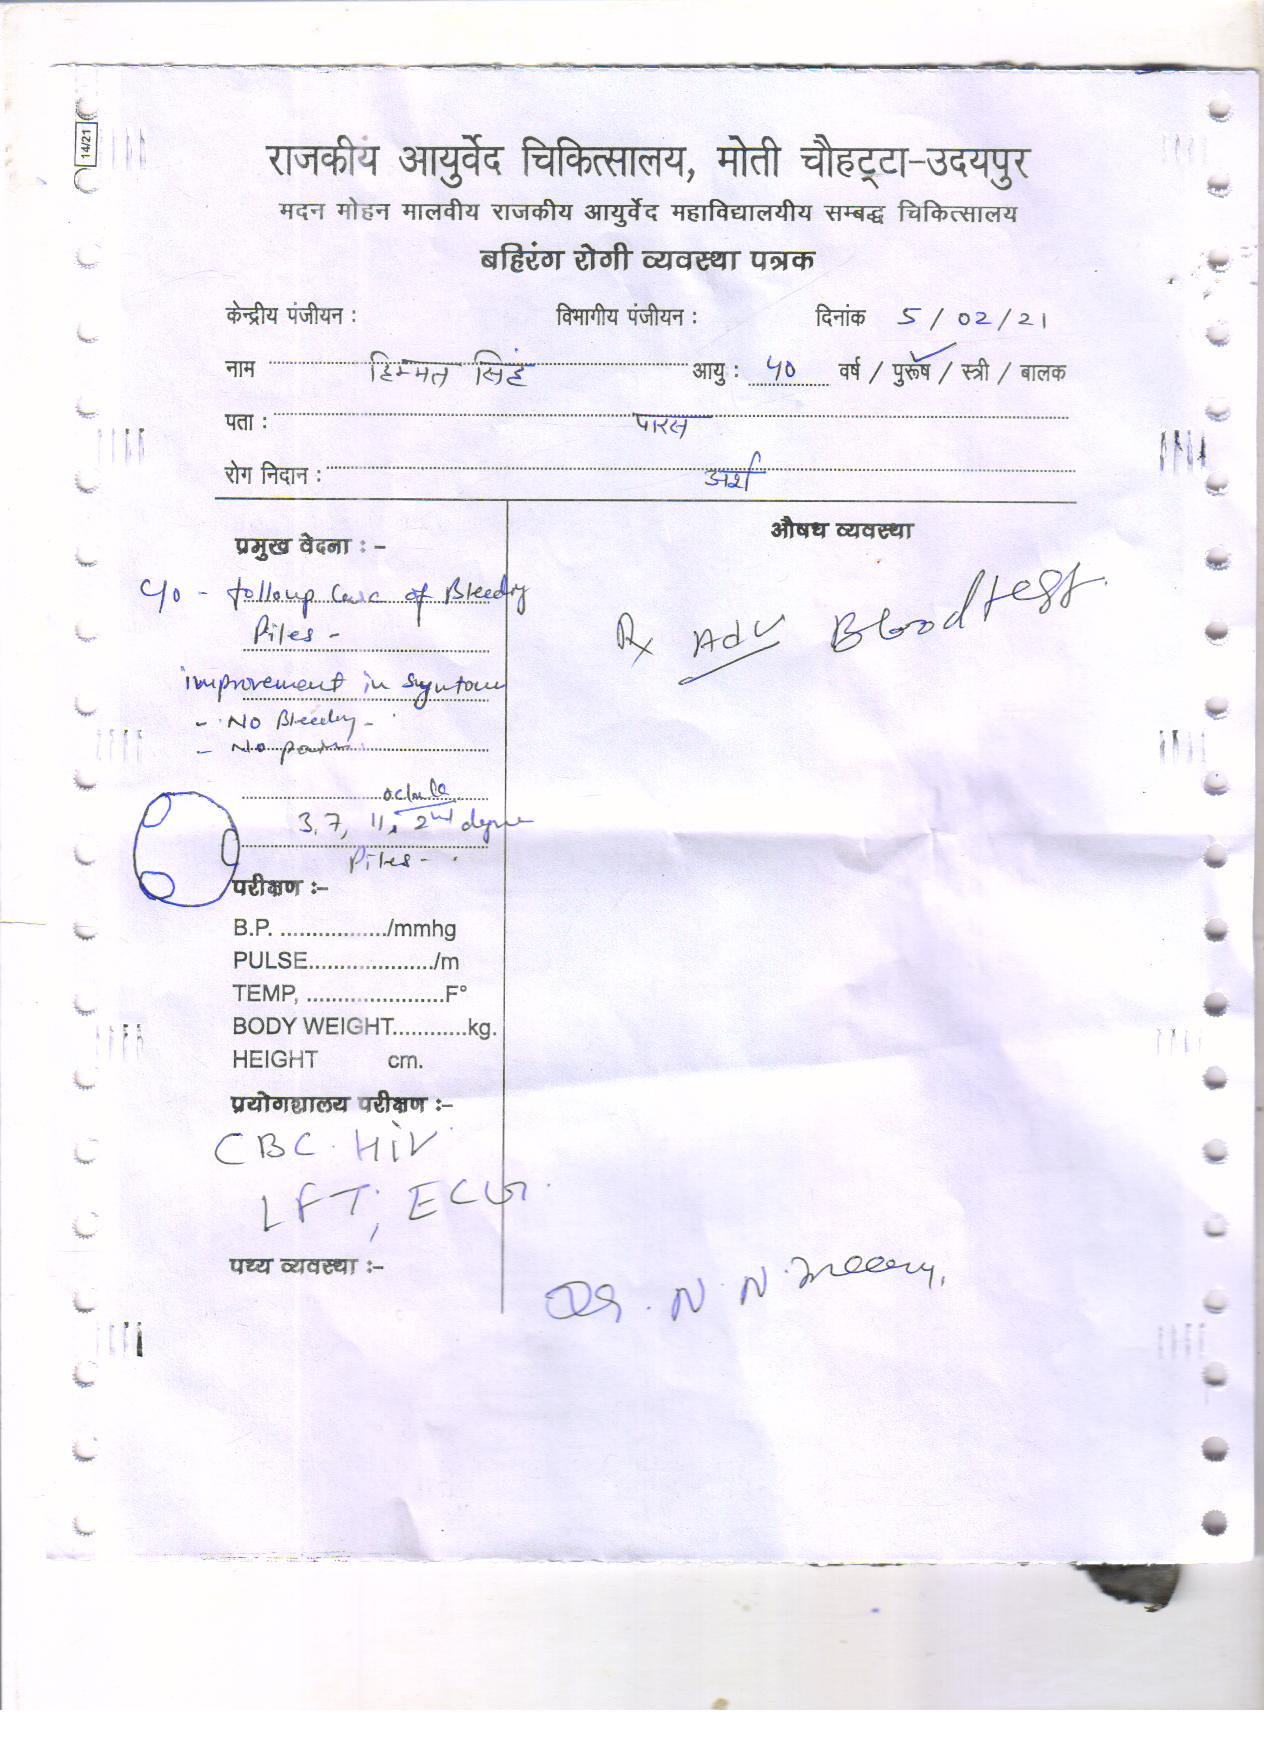 14/21
राजकीय आयुर्वेद चिकित्सालय, मोती चौहट्टा-उदयपुर
मदन मोहन मालवीय राजकीय आयुर्वेद महाविद्यालयीय सम्बद्ध चिकित्सालय
बहिरंग रोगी व्यवस्था पत्रक
केन्द्रीय पंजीयन : विभागीय पंजीयन : दिनांक 5/02/21
नाम हिम्मत सिंह आयु : 40 वर्ष / पुरूष / स्त्री / बालक
पता : पारस
रोग निदान : अर्श
प्रमुख वेदना : - औषध व्यवस्था
C/O - followup Case of Bleedy
Piles -
Rx Adv Blood test.
improvement in
- No Bleedy -
- No pain
o'clock
3, 7, 11, 2nd degree
Piles -
परीक्षण :-
B.P. ................./mmhg
PULSE..................../m
TEMP, ......................F°
BODY WEIGHT............kg.
HEIGHT cm.
प्रयोगशालय परीक्षण :-
CBC. HIV
LFT, ECG.
पथ्य व्यवस्था :-
Dr. N. N.